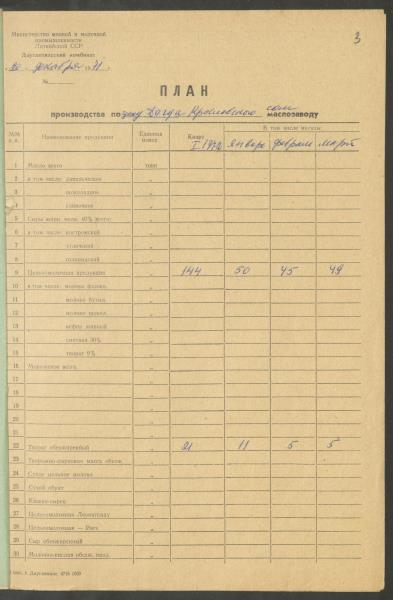 3
Министерство мясной и молочной
промышленности
Латвийской ССР
Даугавпилсский комбинат
30 декабря 1971 г.
№
ПЛАН
производства по цеху Дагда маслозаводу
№№ п. п. Наименование продукции Единица измер. Кварт I 1972 В том числе месяцы: январь февраль март
1 Масло всего тонн
2 в том числе: „
3 шоколадное „
4 сливочное „
5 Сыры жирн. 40% всего: „
6 в том числе: костромской „
7 угличский „
8 голландский „
9 Цельномолочная продукция „ 144 50 45 49
10 в том числе: молоко фляжн. „
11 молоко бутыл. „
12 молоко „
13 кефир жирный „
14 сметана 30% „
15 творог 9% „
16 Мороженое всего „
17 „
18 „
19 „
20 „
21 „
22 Творог обезжиренный „ 21 11 5 5
23 Творожно-сырковая масса обезж. „
24 Сухое цельное молоко „
25 Сухой обрат „
26 Казеин-сырец „
27 Цельномолочная Ленинграду „
28 Цельномолочная — „
29 Сыр обезжиренный „
30 Молочнокислая обезж. прод. „